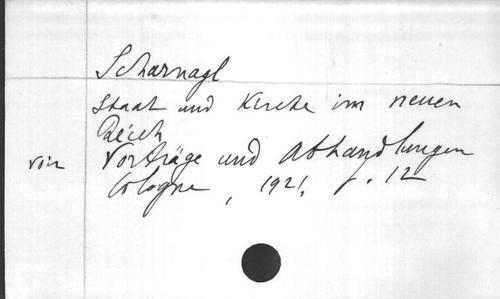 Scharnagl
Staat und Kirche im neuen
Reich
Vorträge und Abhandlungen
Cologne, 1921, p. 12